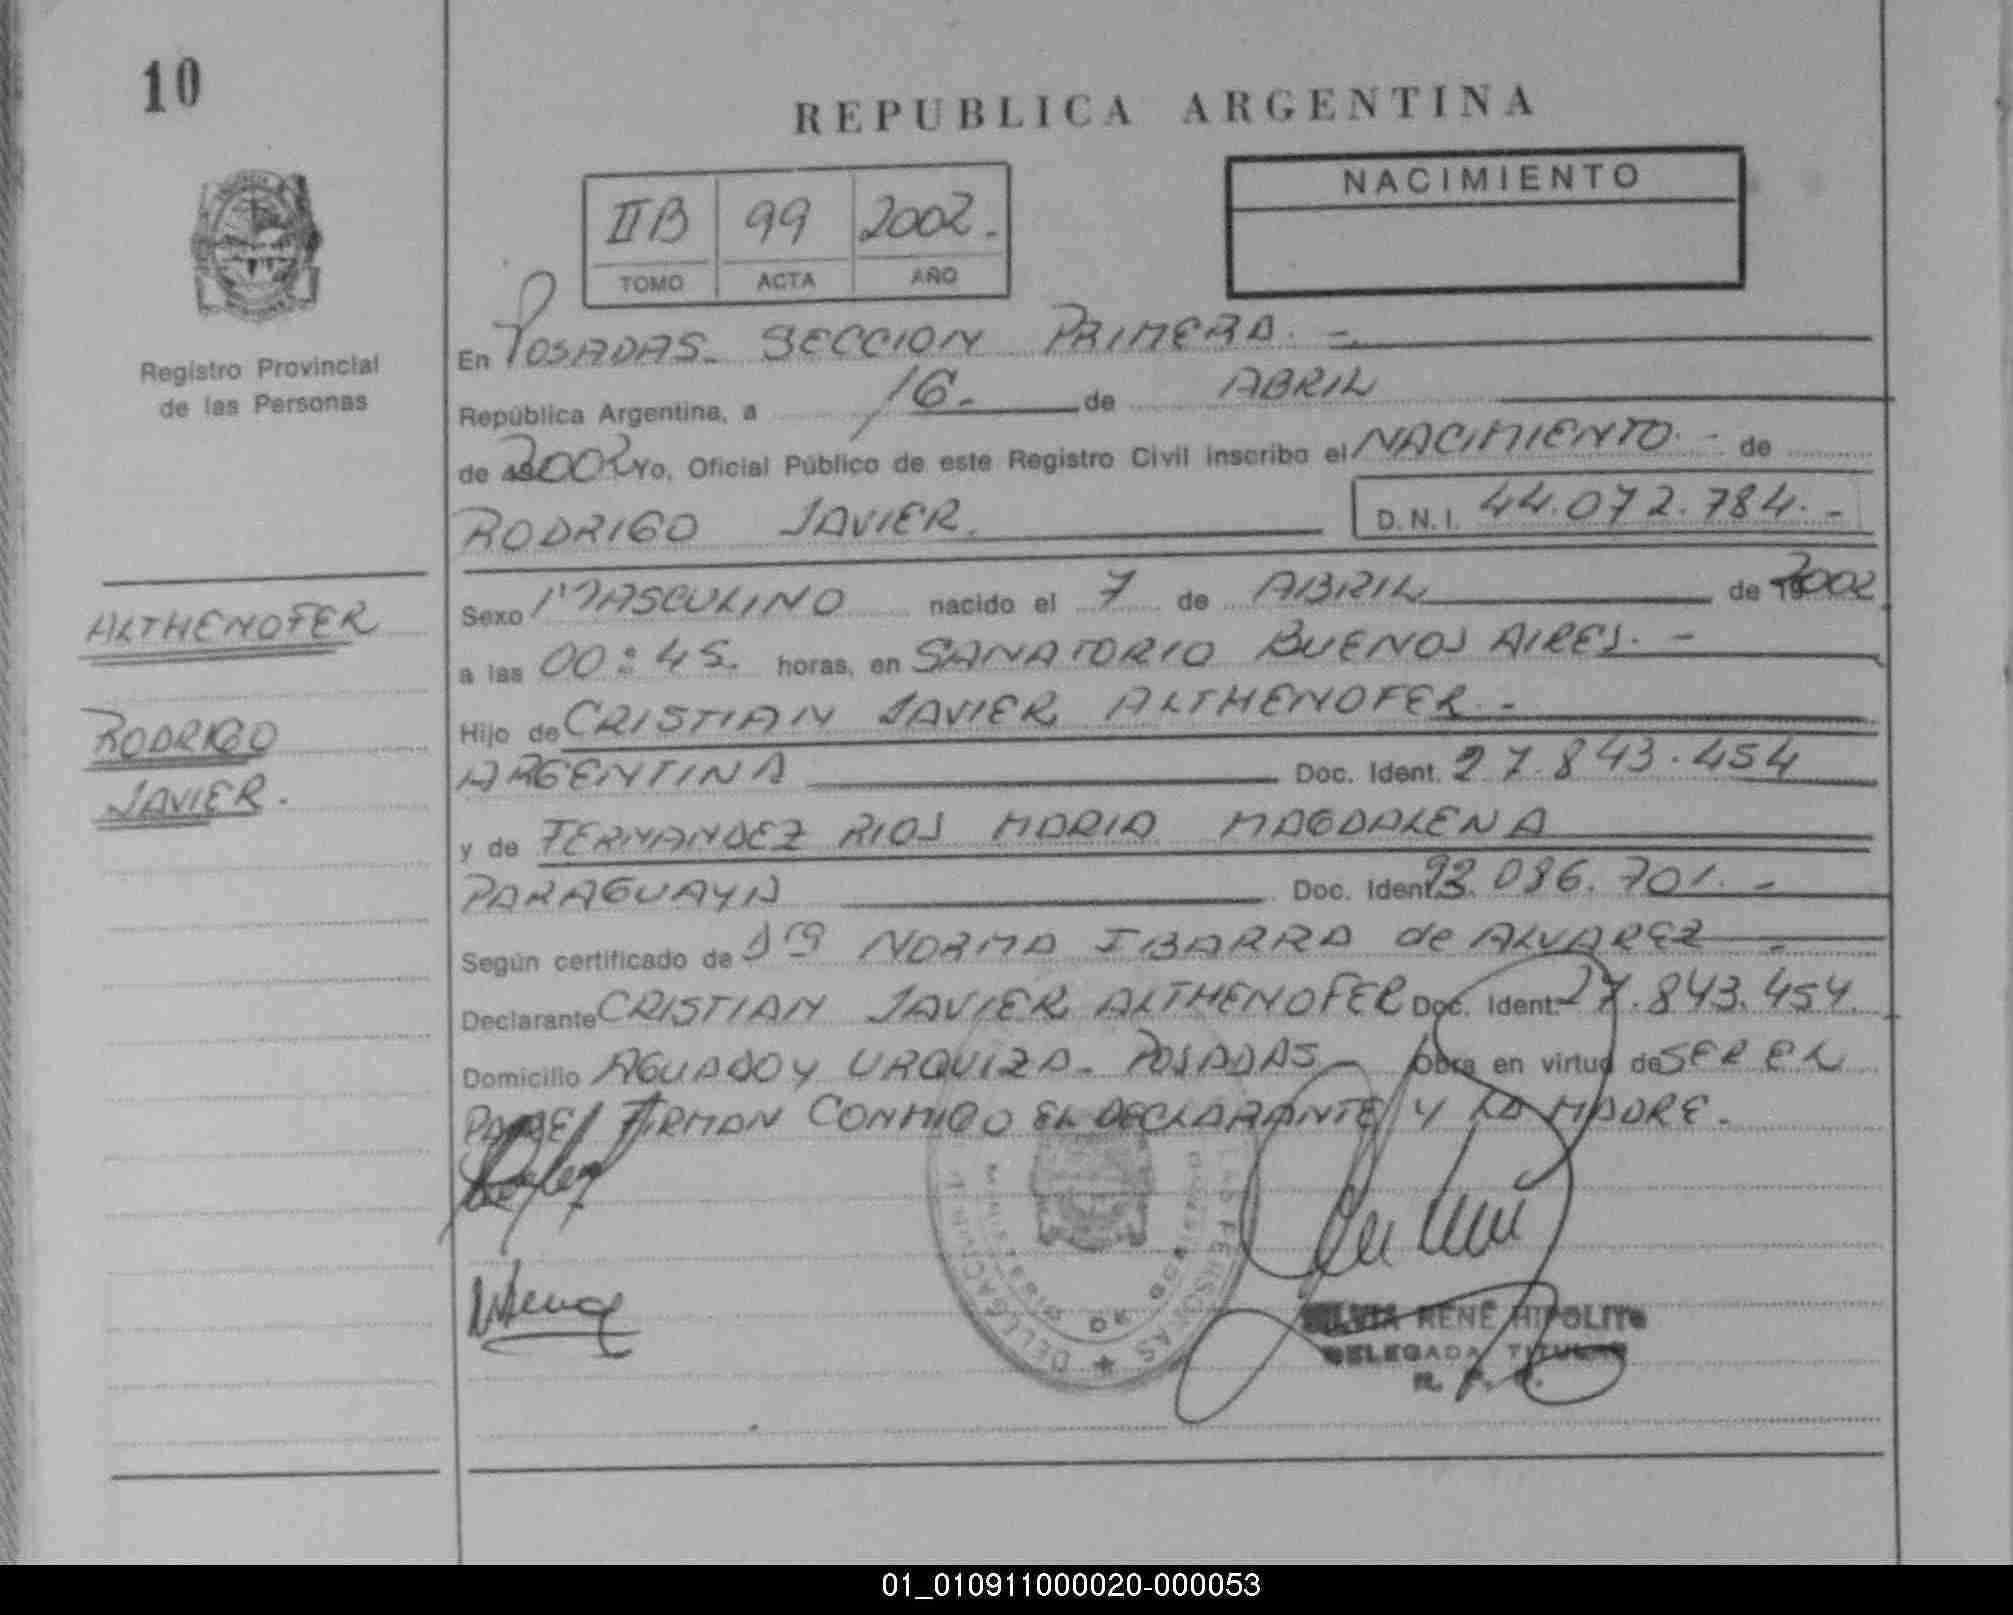 10
REPUBLICA ARGENTINA
NACIMIENTO
II B 99 2002.
TOMO ACTA AÑO
Registro Provincial
de las Personas
En POSADAS. SECCION PRIMERA. -.
República Argentina, a 16. de ABRIL
de 2002 Yo, Oficial Público de este Registro Civil inscribo el NACIMIENTO. - de
RODRIGO JAVIER. D.N.I. 44.072.784. -
ALTHENOFER
RODRIGO
JAVIER.
Sexo MASCULINO nacido el 7 de ABRIL de 2002
a las 00:45. horas, en SANATORIO BUENOS AIRES. -
Hijo de CRISTIAN JAVIER ALTHENOFER. -
ARGENTINA Doc. Ident. 27.843.454
y de FERNANDEZ RIOS MARIA MAGDALENA
PARAGUAYA Doc. Ident. 93.036.701. -
Según certificado de NORMA IBARRA de ALVAREZ -
Declarante CRISTIAN JAVIER ALTHENOFER Doc. Ident. 27.843.454.
Domicilio AGUADO Y URQUIZA. POSADAS - Obra en virtud de SER EL
PADRE/ FIRMAN CONMIGO EL DECLARANTE Y LA MADRE.
SILVIA RENÉ HIPOLITO
DELEGADA TITULAR
R. P. P.
01_010911000020-000053